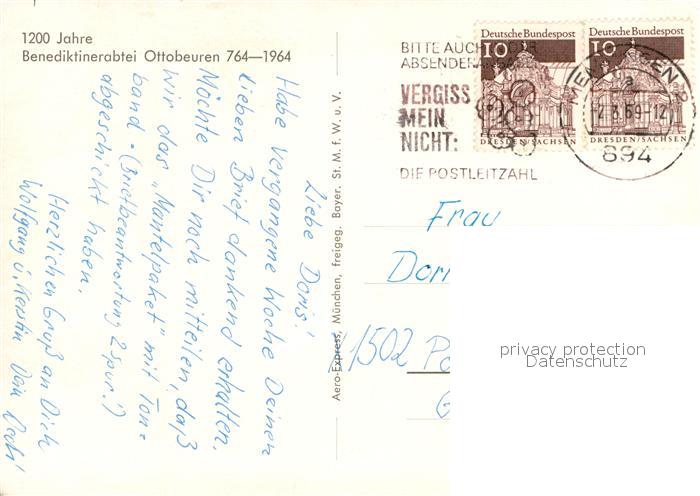 1200 Jahre
Benediktinerabtei Ottobeuren 764—1964
Liebe Doris!
Habe vergangene Woche Deinen
lieben Brief dankend erhalten.
Möchte Dir noch mitteilen, daß
wir das „Mantelpaket" mit Ton=
band. (Briefbeantwortung 2 spur!)
abgeschickt haben.
Herzlichen Gruß an Dich
Wolfgang u. Kerstin
Aero-Express, München, freigeg. Bayer. St. M. f. W. u. V.
BITTE AUCH
VERGISS
MEIN
NICHT:
DIE POSTLEITZAHL
Deutsche Bundespost
10
DRESDEN/SACHSEN
Deutsche Bundespost
10
DRESDEN/SACHSEN
a
2.3.69-12
894
Frau
1502
privacy protection
Datenschutz